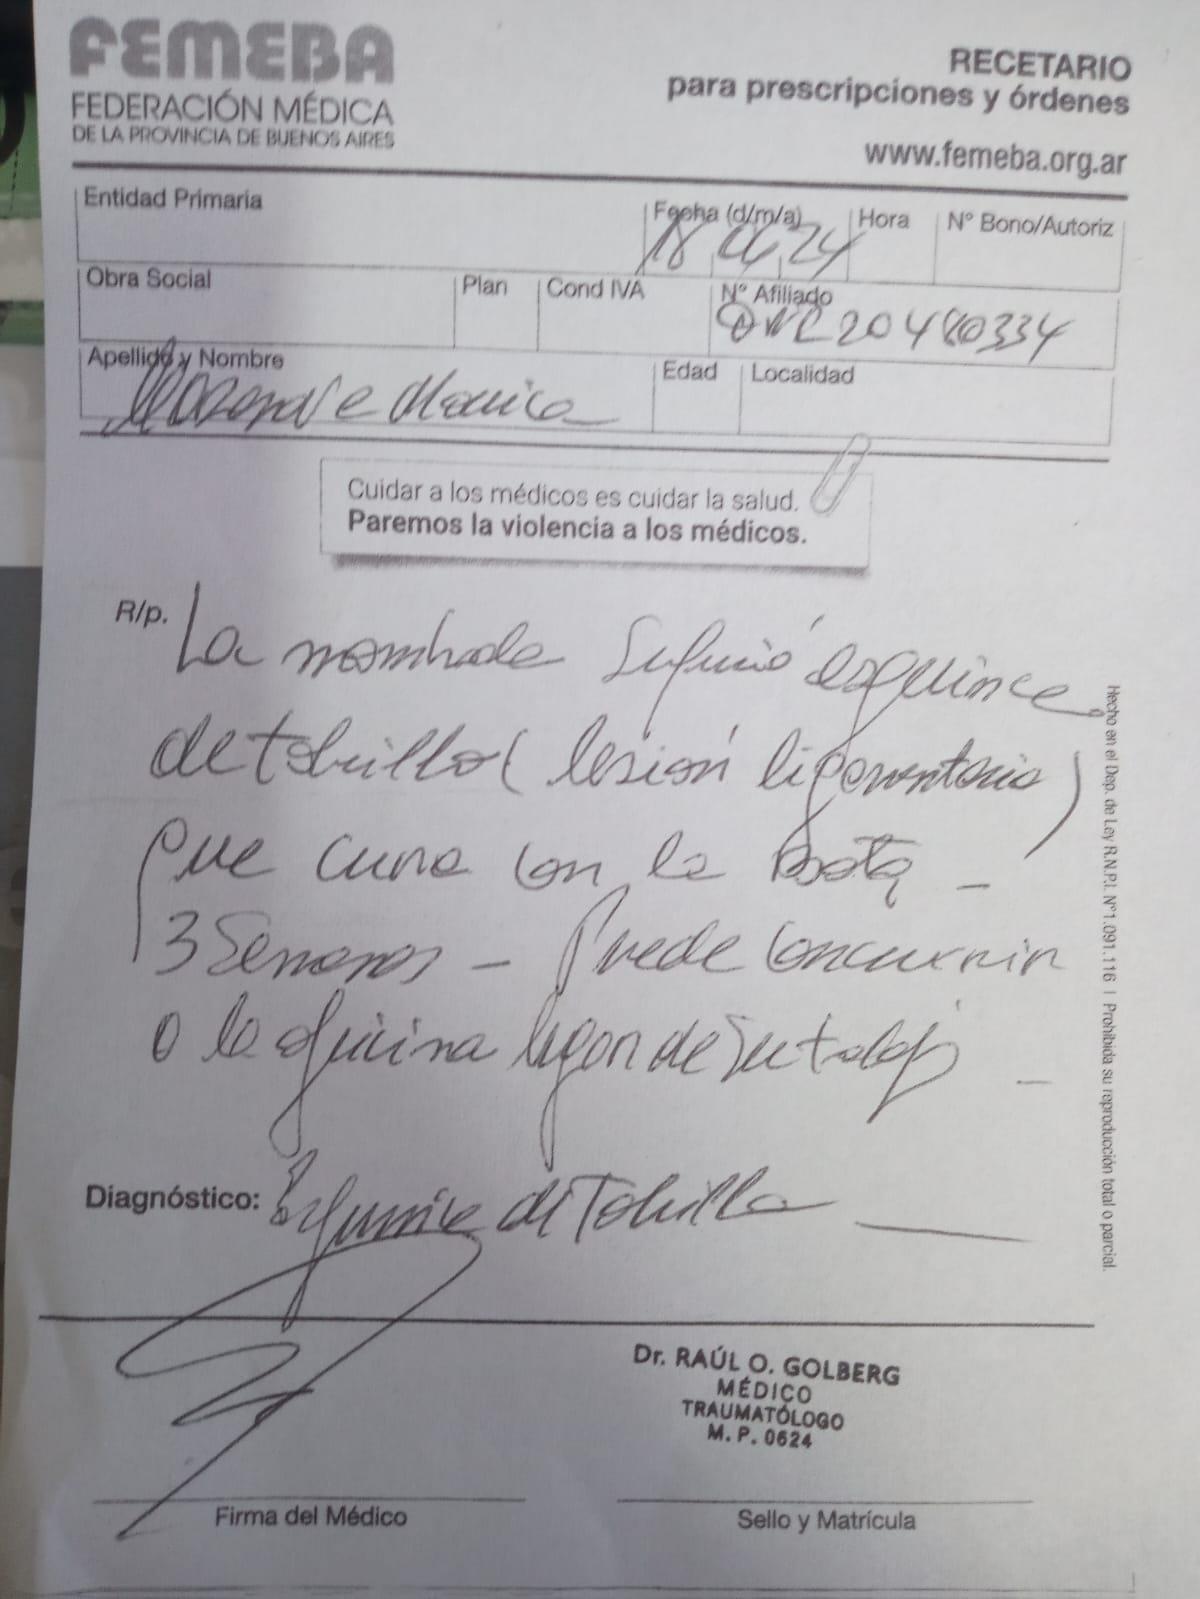 FEMEBA
FEDERACIÓN MÉDICA
DE LA PROVINCIA DE BUENOS AIRES
RECETARIO
para prescripciones y órdenes
www.femeba.org.ar
Entidad Primaria
Fecha (d/m/a)
Hora
N° Bono/Autoriz
Obra Social
Plan
Cond IVA
N° Afiliado
20480334
Apellido y Nombre
Monica
Edad
Localidad
Cuidar a los médicos es cuidar la salud.
Paremos la violencia a los médicos.
R/p. La nombrada sufrió esguince
de tobillo (lesión ligamentaria)
que cura con la bota –
3 semanas – Puede concurrir
a la oficina
Diagnóstico: Esguince de Tobillo
Dr. RAÚL O. GOLBERG
MÉDICO
TRAUMATÓLOGO
M. P. 0624
Firma del Médico
Sello y Matrícula
Hecho en el Dep. de Ley R.N.P.I. N°1.091.116 | Prohibida su reproducción total o parcial.